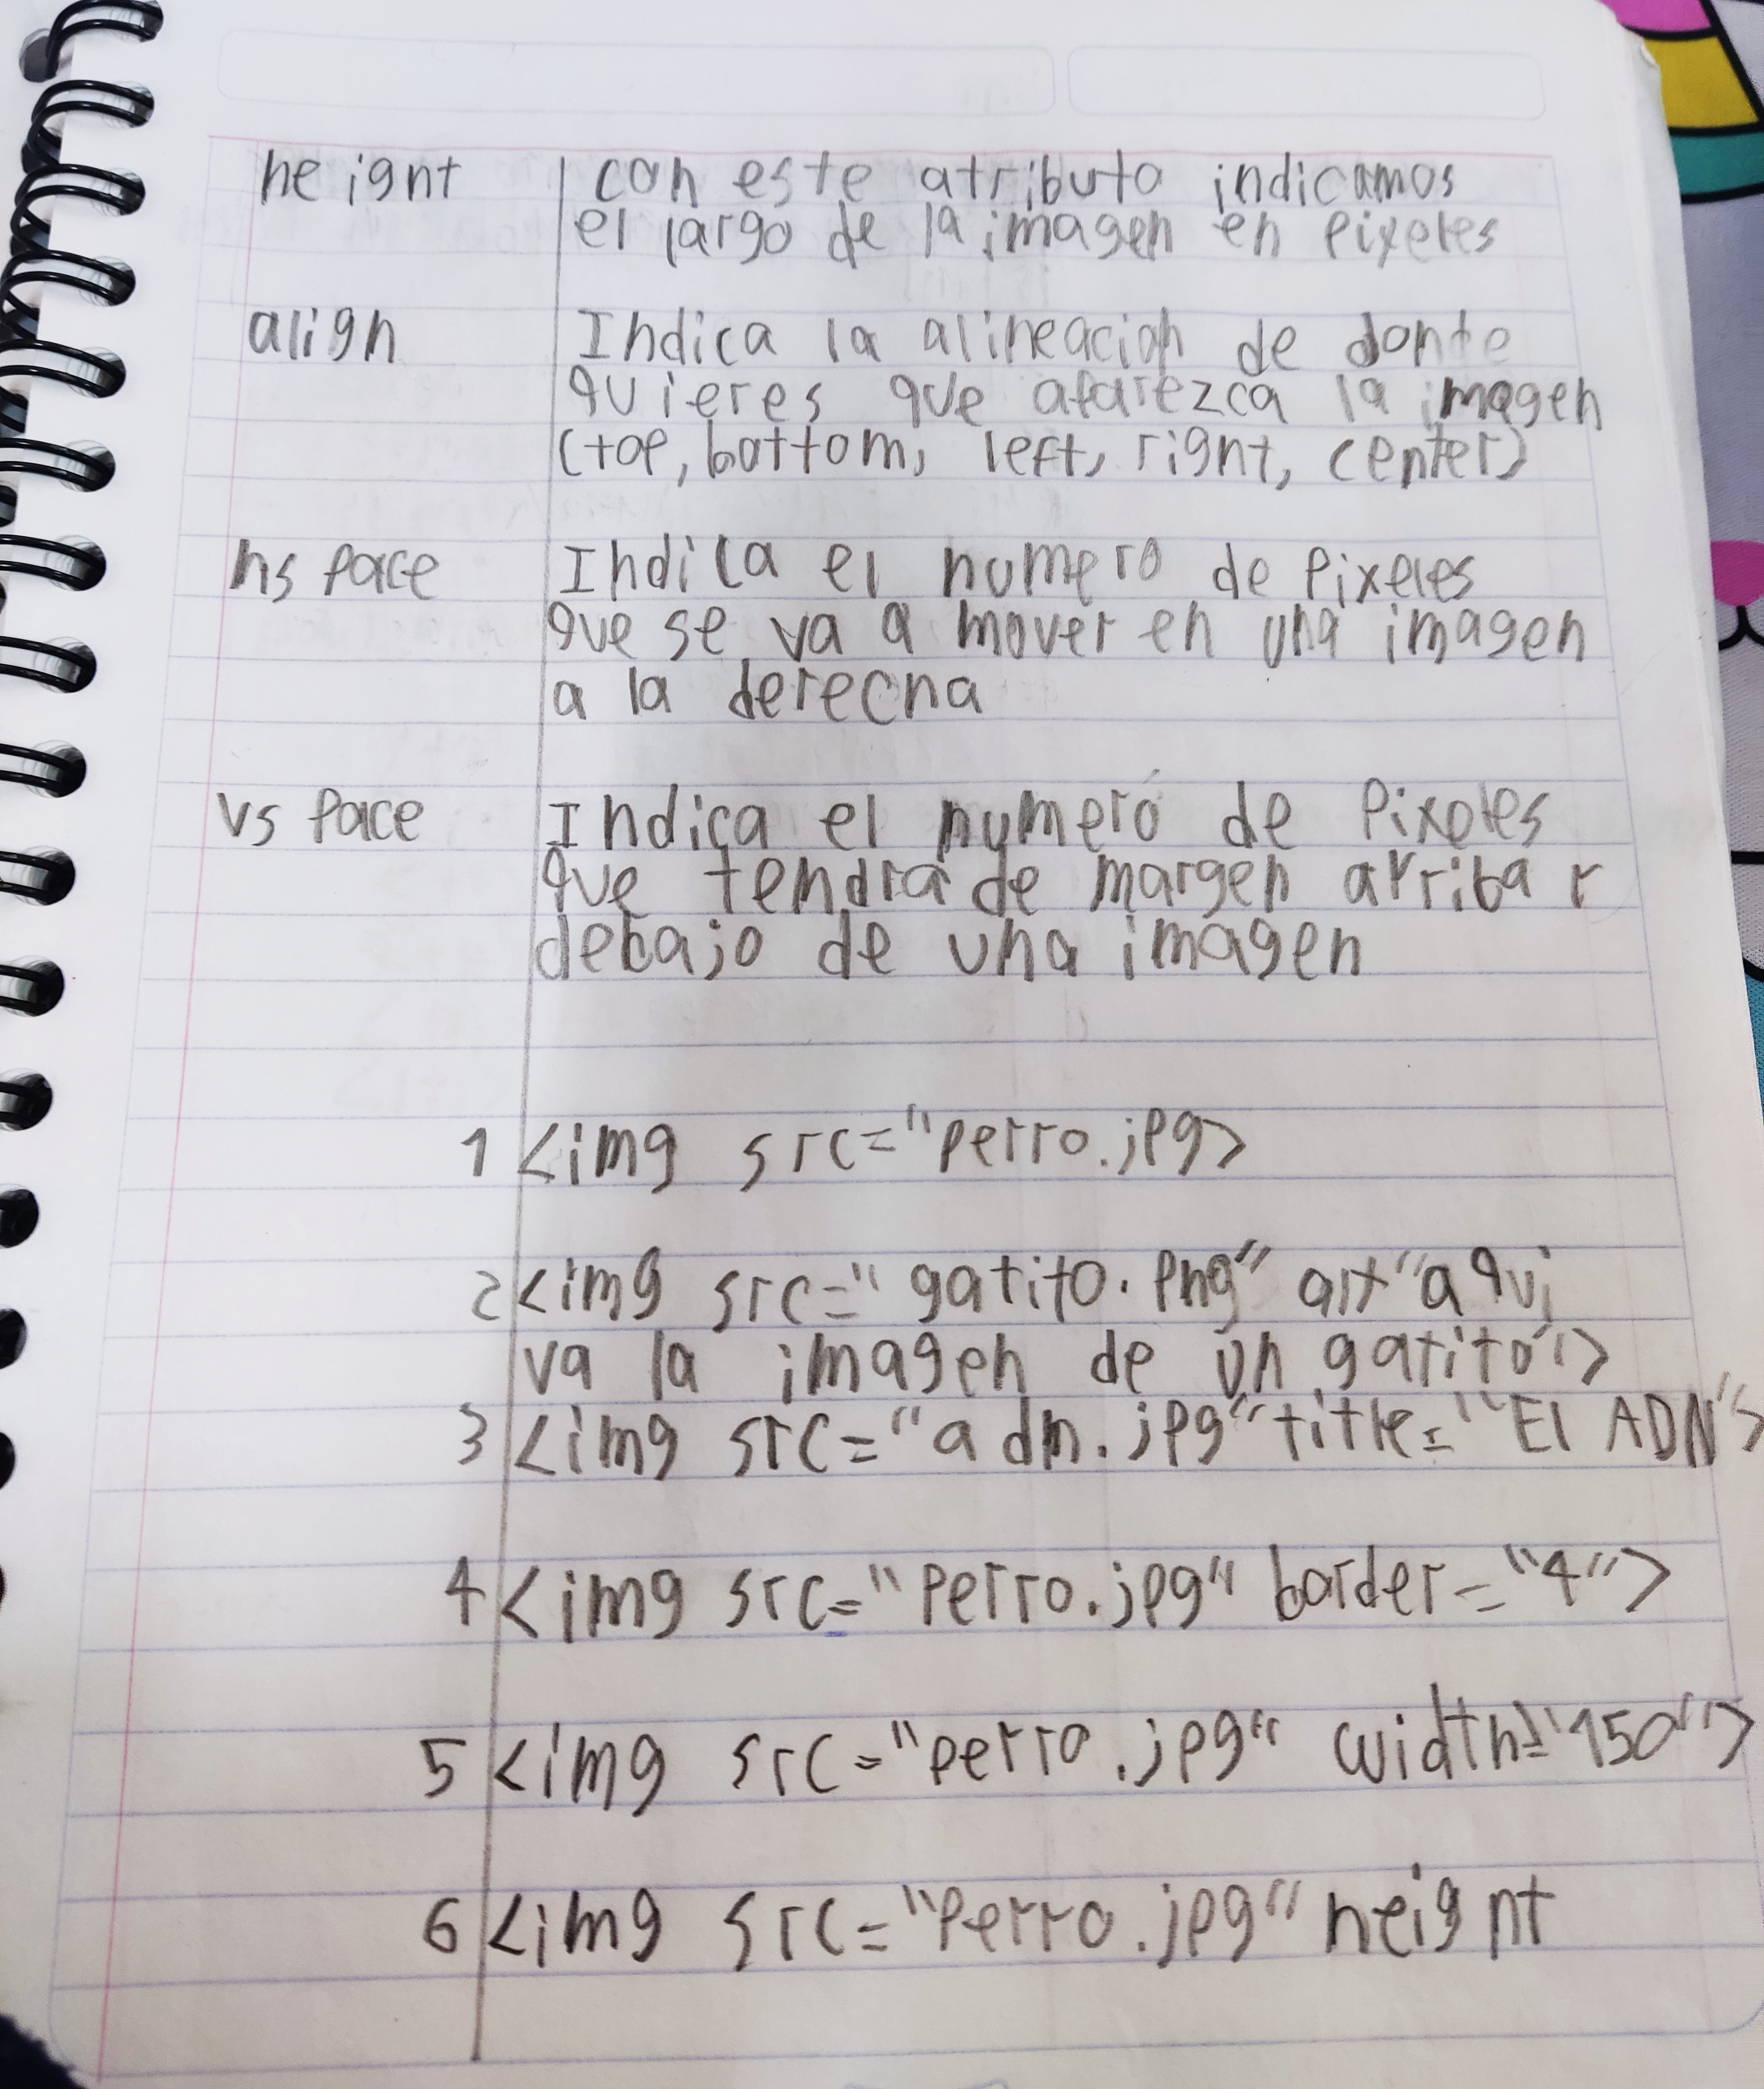 height con este atributo indicamos
el largo de la imagen en pixeles
align Indica la alineacion de donte
quieres que aparezca la imagen
(top, bottom, left, right, center)
hs pace Indica el numero de pixeles
que se va a mover en una imagen
a la derecha
vs pace Indica el numero de pixeles
que tendrá de margen arriba y
debajo de una imagen
1 <img src="perro.jpg>
2 <img src="gatito.png" alt"aqui
va la imagen de un gatito">
3 <img src="adn.jpg" title="El ADN">
4 <img src="perro.jpg" border="4">
5 <img src="perro.jpg" width="150">
6 <img src="perro.jpg" height